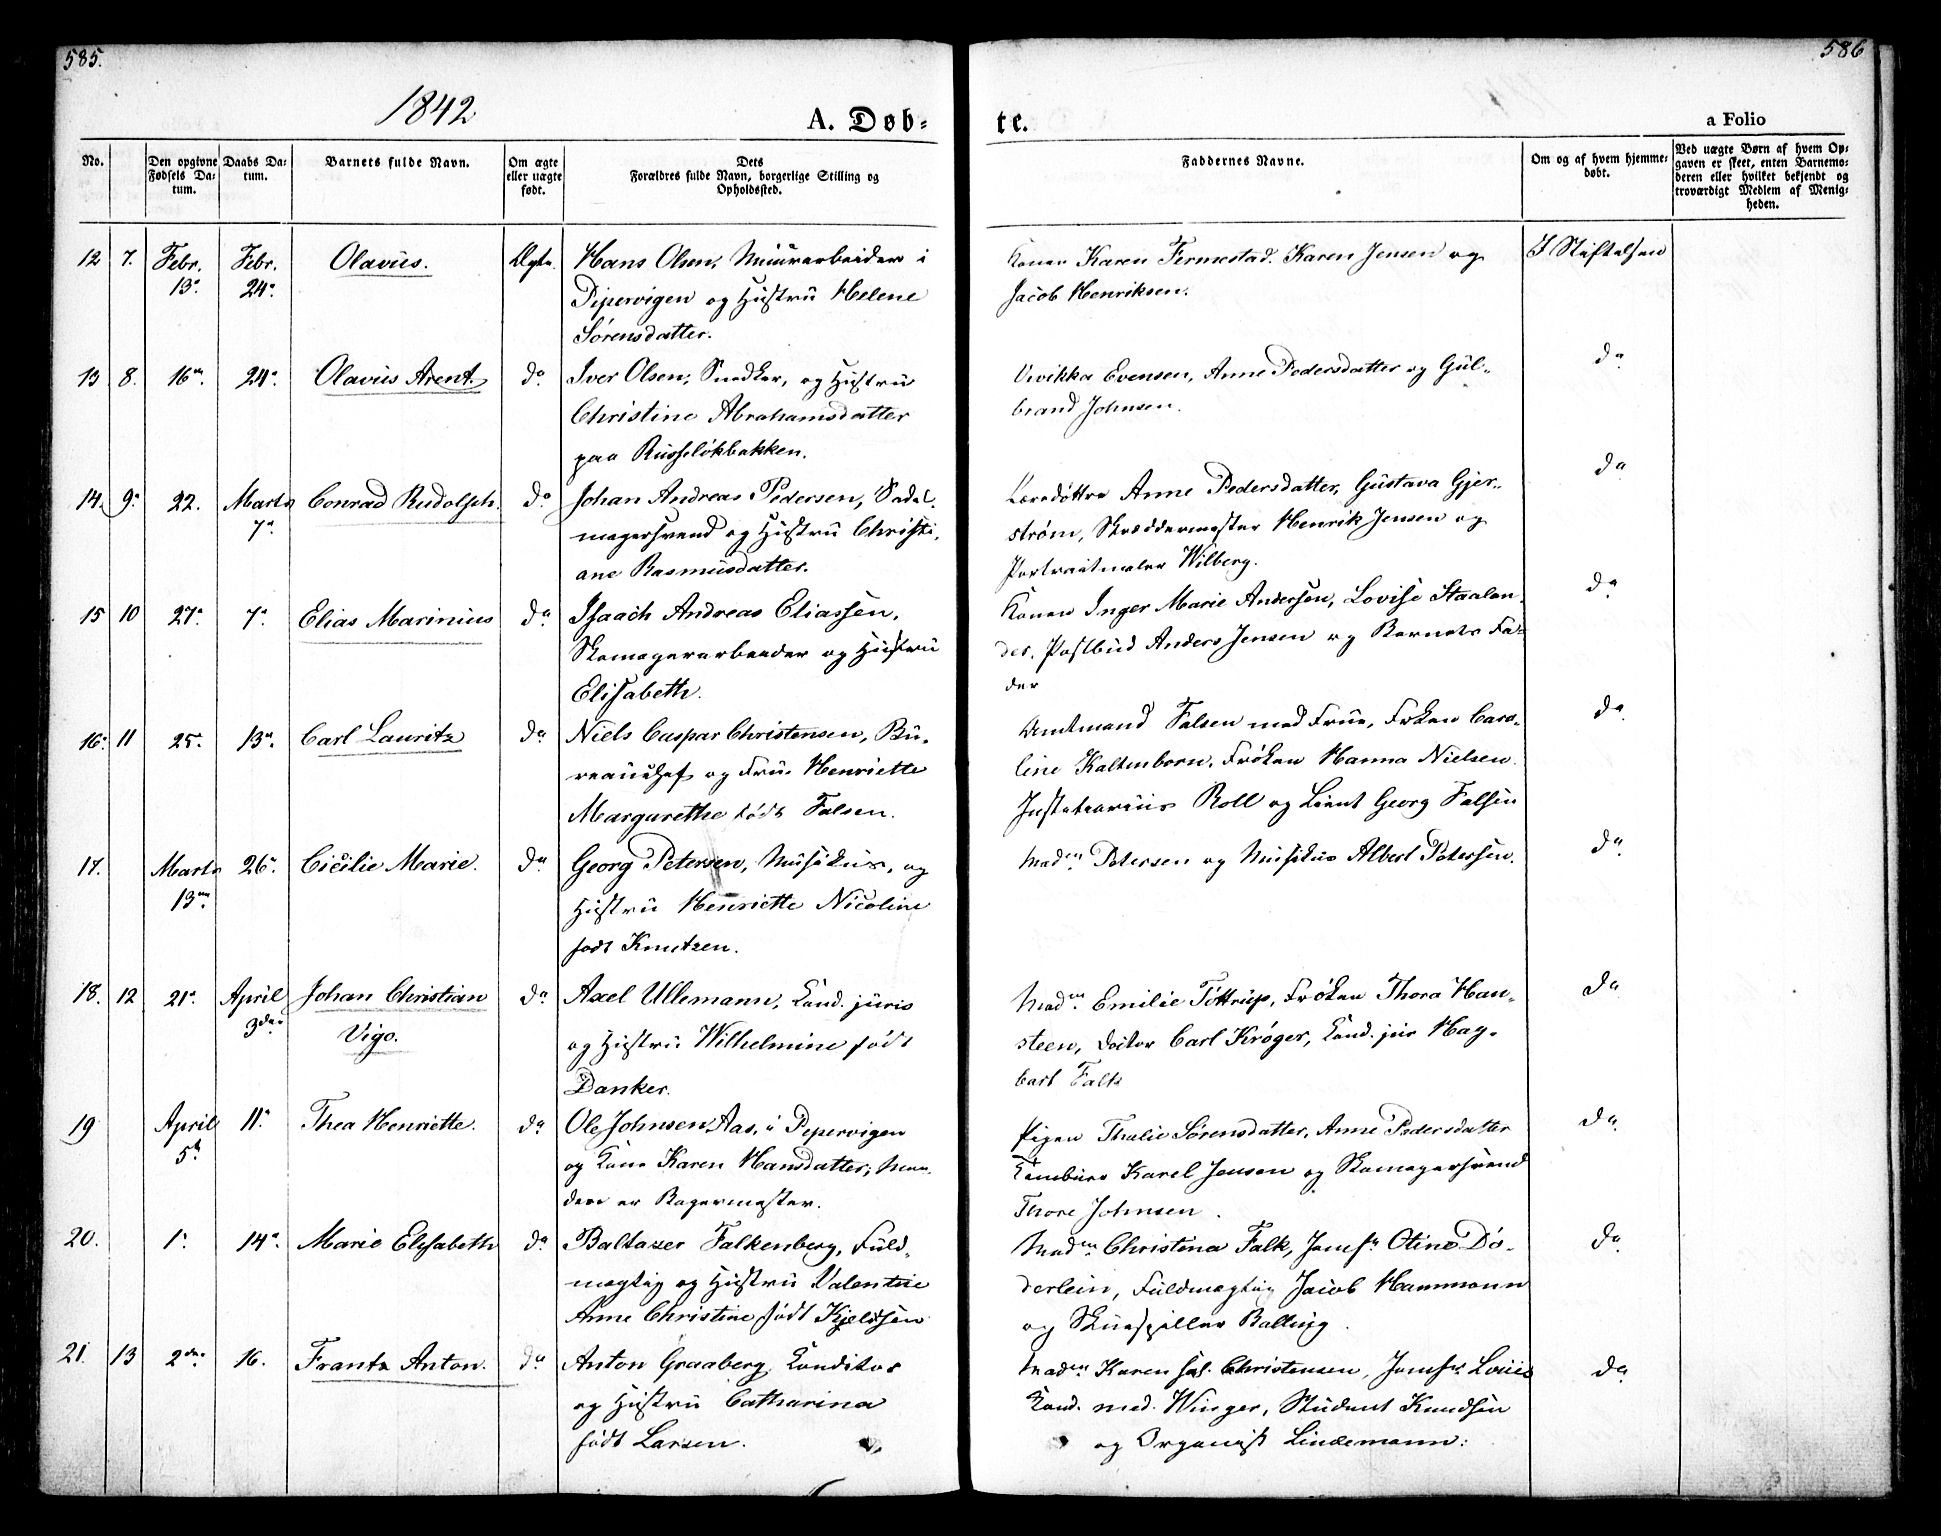 585.
586
1842
A. Døb-
te.
a Folio
No.
Den opgivne Fødsels Da-
tum.
Daabs Da-
tum.
Barnets fulde Navn.
Om ægte
eller uægte
født.
Dets
Forældres fulde Navn, borgerlige Stilling og
Opholdssted.
Faddernes Navne.
Om og af hvem hjemme-
døbt.
Ved uægte Børn af hvem Op-
gaven er skeet, enten Barnemo-
deren eller hvilket bekjendt og
troværdigt Medlem af Menig-
heden.
12 7. Febr. 13. Febr. 24. Olavus. Ægte.
Hans Olsen, Muurarbeider i
Pipervigen og Hustru Helene
Sørensdatter.
Konen Karen Fermestad. Karen Jensen og
Jacob Henriksen.
I Stiftelsen
13 8. 16. 24. Olavus Arent. do.
Iver Olsen, Snedker, og Hustru
Christine Abrahamsdatter
paa Russeløkbakken.
Vivikka Evensen, Anne Pedersdatter og Gul-
brand Johnsen.
do
14. 9. 22. Marts 7. Conrad Rudolph. do.
Johan Andreas Pedersen, Sadel-
magersvend og Hustru Christi-
ane Rasmusdatter.
Anne Pedersdatter, Gustava Gjer-
strøm, Skræddermester Henrik Jensen og
Portraitmaler Wilberg.
do
15 10 27. 7. Elias Marinius do.
Isaach Andreas Eliassen,
Skomagerarbeider og Hustru
Elisabeth.
Konen Inger Marie Andersen, Lovise Staalan-
der. Postbud Anders Jensen og Barnets Fa-
der
do.
16. 11 25. 13. Carl Lauritz do.
Niels Caspar Christensen, Bu-
reauchef og Frue Henriette
Margarethe født Falsen.
Amtmand Falsen med Frue, Frøken Caro-
line Kaltenborn. Frøken Hanna Nielsen.
Justitiarius Roll og Lieut Georg Falsen
do.
17. Marts 13. 26. Cicilie Marie. do.
Georg Petersen, Musikus, og
Hustru Henriette Nicoline
født Knutzen.
Madm. Petersen og Musikus Albert Petersen.
do.
18. 12 21. April 3die Johan Christian
Vigo. do.
Axel Ullemann, Cand. juris
og Hustru Wilhelmine født
Danker.
Madm. Emilie Tøttrup, Frøken Thora Han-
steen, Doctor Carl Krøger, Cand. jur Hag-
bart Falk
do
19 April 5. 11. Thea Henriette. do
Ole Johnsen Aas, i Pepervigen
og Kone Karen Hansdatter; Man-
den er Bagermester.
Pigen Thalie Sørensdatter, Anne Pedersdatter
Karel Jensen og Skomagersvend
Thore Johnsen.
do.
20. 1. 14. Marie Elisabeth do
Baltazer Falkenberg, Fuld-
mægtig og Hustru Valentine
Anne Christine født Kjeldsen
Madm. Christina Falk, Jomfr Otine Dø-
derlein, Fuldmægtig Jacob Hammann
og Skuespiller Balling.
do.
21. 13 2den 16. Frantz Anton. do
Anton Graaberg, Conditor
og Hustru Catharina
født Larsen.
Madm. Karen sal. Christensen, Jomfr. Louis
Cand. med. Winger, Student Knudsen
og Organist Lindemann.
do.